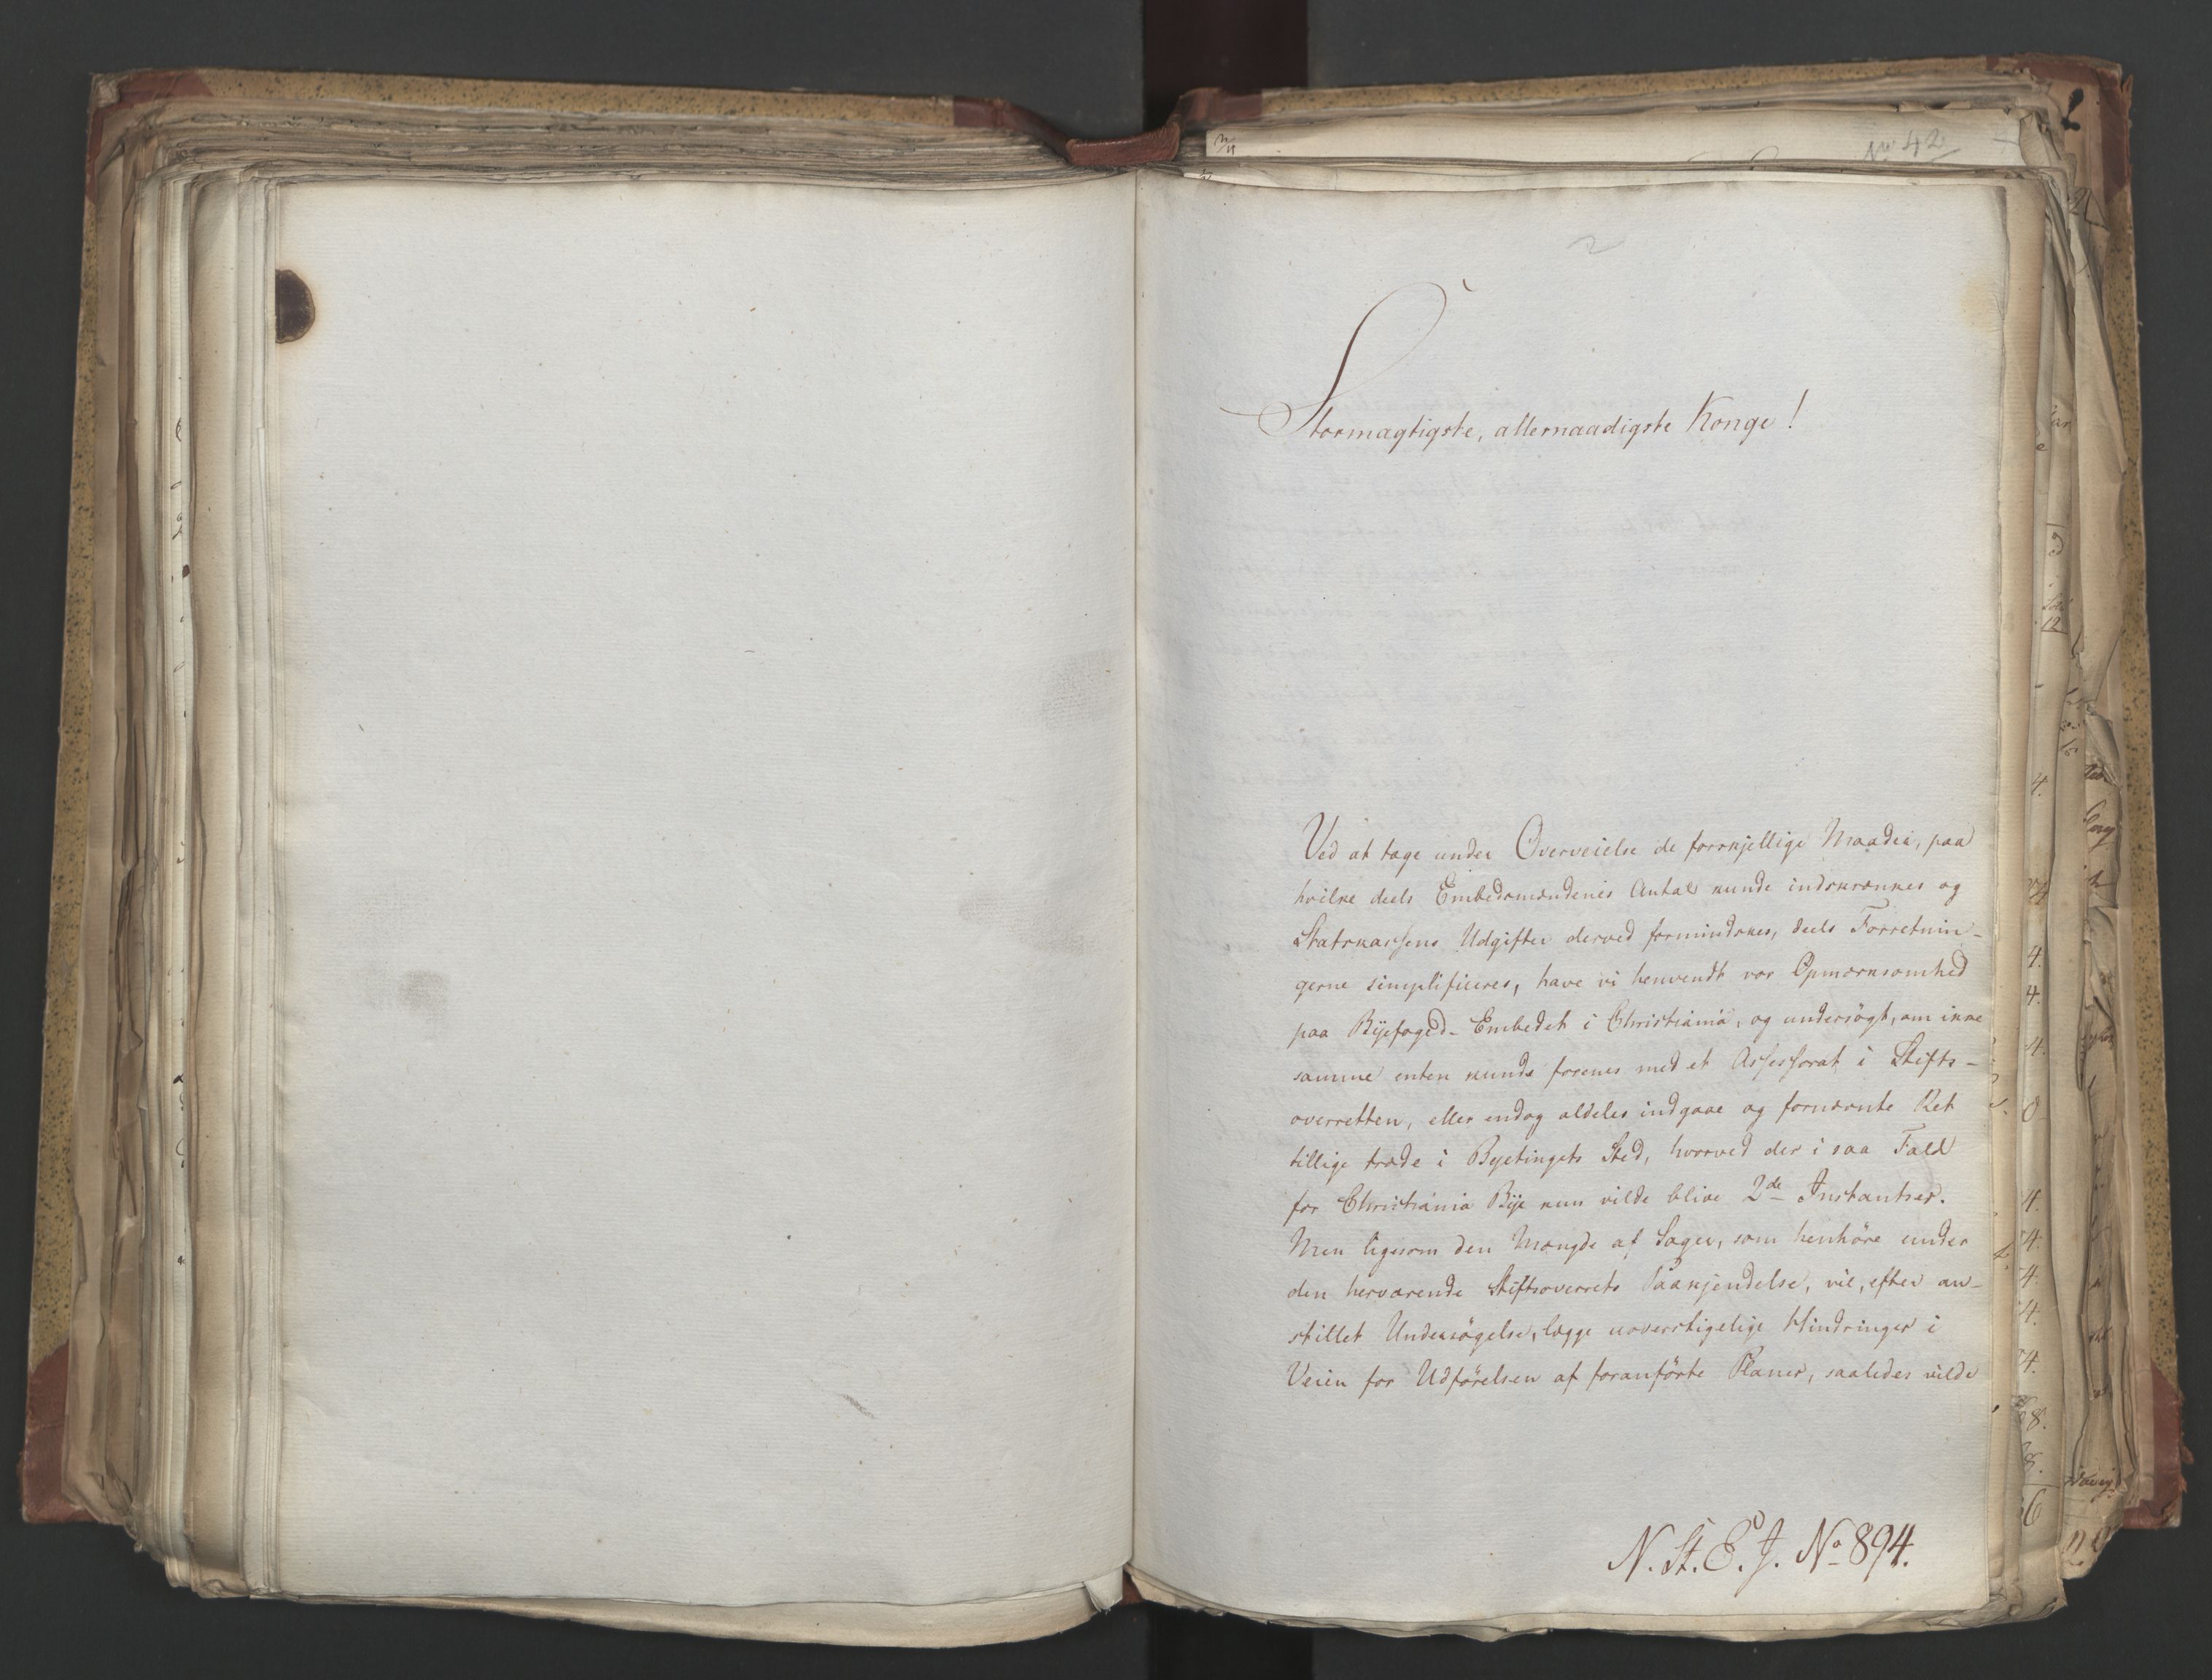 No 42
2
Stormægtigste, allernaadigste Konge!
Ved at tage under Overveielse de forskjellige Maader, paa
hvilke deels Embedsmændenes Antal kunde indskrænkes og
Statskassens Udgifter derved formindskes, deels Forretnin-
gerne simplificeres, have vi henvendt vor Opmærksomhed
paa Byefoged-Embedet i Christiania, og undersögt, om ikke
samme enten kunde forenes med et Assessorat i Stifts-
overretten, eller endog aldeles indgaae og fornævnte Ret
tillige træde i Byetingets Sted, hvorved der i saa Fald
for Christiania Bye kun vilde blive 2de Instantser.
Men ligesom den Mængde af Sager, som henhöre under
den herværende Stiftsoverrets Paakjendelse, vil, efter an-
stillet Undersögelse, lægge uoverstigelige Hindringer i
Veien for Udförelsen af foranförte Planer, saaledes vilde
N. St. E. J. No 894.